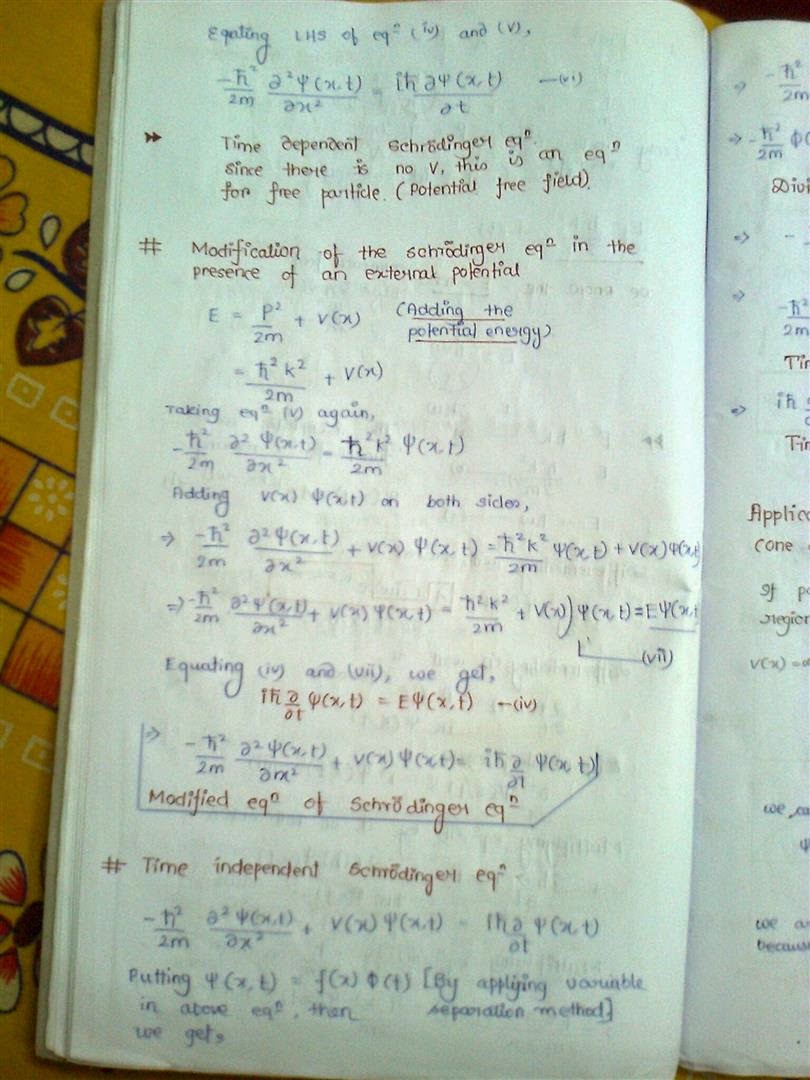 Eqating LHS of eqⁿ (iv) and (v),
-ħ²/2m ∂²Ψ(x,t)/∂x² = iħ ∂Ψ(x,t)/∂t —(vi)
Time dependent Schrödinger eqⁿ
since there is no V, this is an eqⁿ
for free particle. (Potential free field).
# Modification of the schrödinger eqⁿ in the
presence of an external potential
E = P²/2m + V(x) (Adding the
potential energy)
= ħ²k²/2m + V(x)
Taking eqⁿ (v) again,
-ħ²/2m ∂²Ψ(x,t)/∂x² = ħ²k²/2m Ψ(x,t)
Adding V(x) Ψ(x,t) on both sides,
⇒ -ħ²/2m ∂²Ψ(x,t)/∂x² + V(x) Ψ(x,t) = ħ²k²/2m Ψ(x,t) + V(x)Ψ(x,t)
⇒ -ħ²/2m ∂²Ψ(x,t)/∂x² + V(x) Ψ(x,t) = ħ²k²/2m + V(x)) Ψ(x,t) = EΨ(x,t
(vii)
Equating (iv) and (vii), we get,
iħ ∂/∂t Ψ(x,t) = EΨ(x,t) —(iv)
⇒ -ħ²/2m ∂²Ψ(x,t)/∂x² + V(x)Ψ(x,t) = iħ ∂/∂t Ψ(x,t)
Modified eqⁿ of Schrödinger eqⁿ
# Time independent Schrödinger eqⁿ
-ħ²/2m ∂²Ψ(x,t)/∂x² + V(x)Ψ(x,t) = iħ ∂/∂t Ψ(x,t)
Putting Ψ(x,t) = f(x) Φ(t) [By applying variable
in above eqⁿ, then separation method]
we get,
⇒ -ħ²/2m
⇒ -ħ²/2m Φ(
Divi
⇒ -
⇒ -ħ²/2m
Tim
⇒ iħ
Tim
Applic
(one
of p
region
V(x) =
we ca
Ψ
we a
because